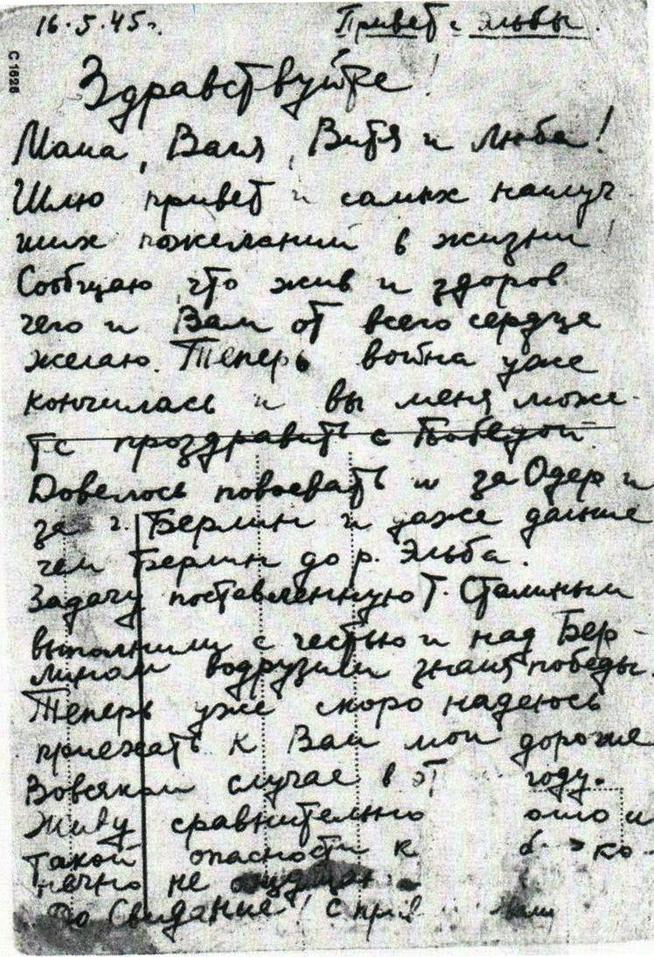 16.5.45г. Привет с Эльбы.
С 1626
Здравствуйте!
Мама, Вася, Витя и Люба!
Шлю привет и самых наилуч
ших пожеланий в жизни!
Сообщаю что жив и здоров
чего и Вам от всего сердца
желаю. Теперь война уже
кончилась и вы меня може-
те проздравить с Победой
Довелось повоевать и за Одер и
за г. Берлин и даже дальше
чем Берлин до р. Эльба.
Задачу поставленную Т. Сталиным
выполнили с честью и над Бер-
лином водрузили знамя победы.
Теперь уже скоро надеюсь
приехать к Вам мои дорогие
Вовсяком случае в эт году.
Живу сравнительно и
такой опасности к ко-
нечно не
До Свидание! С